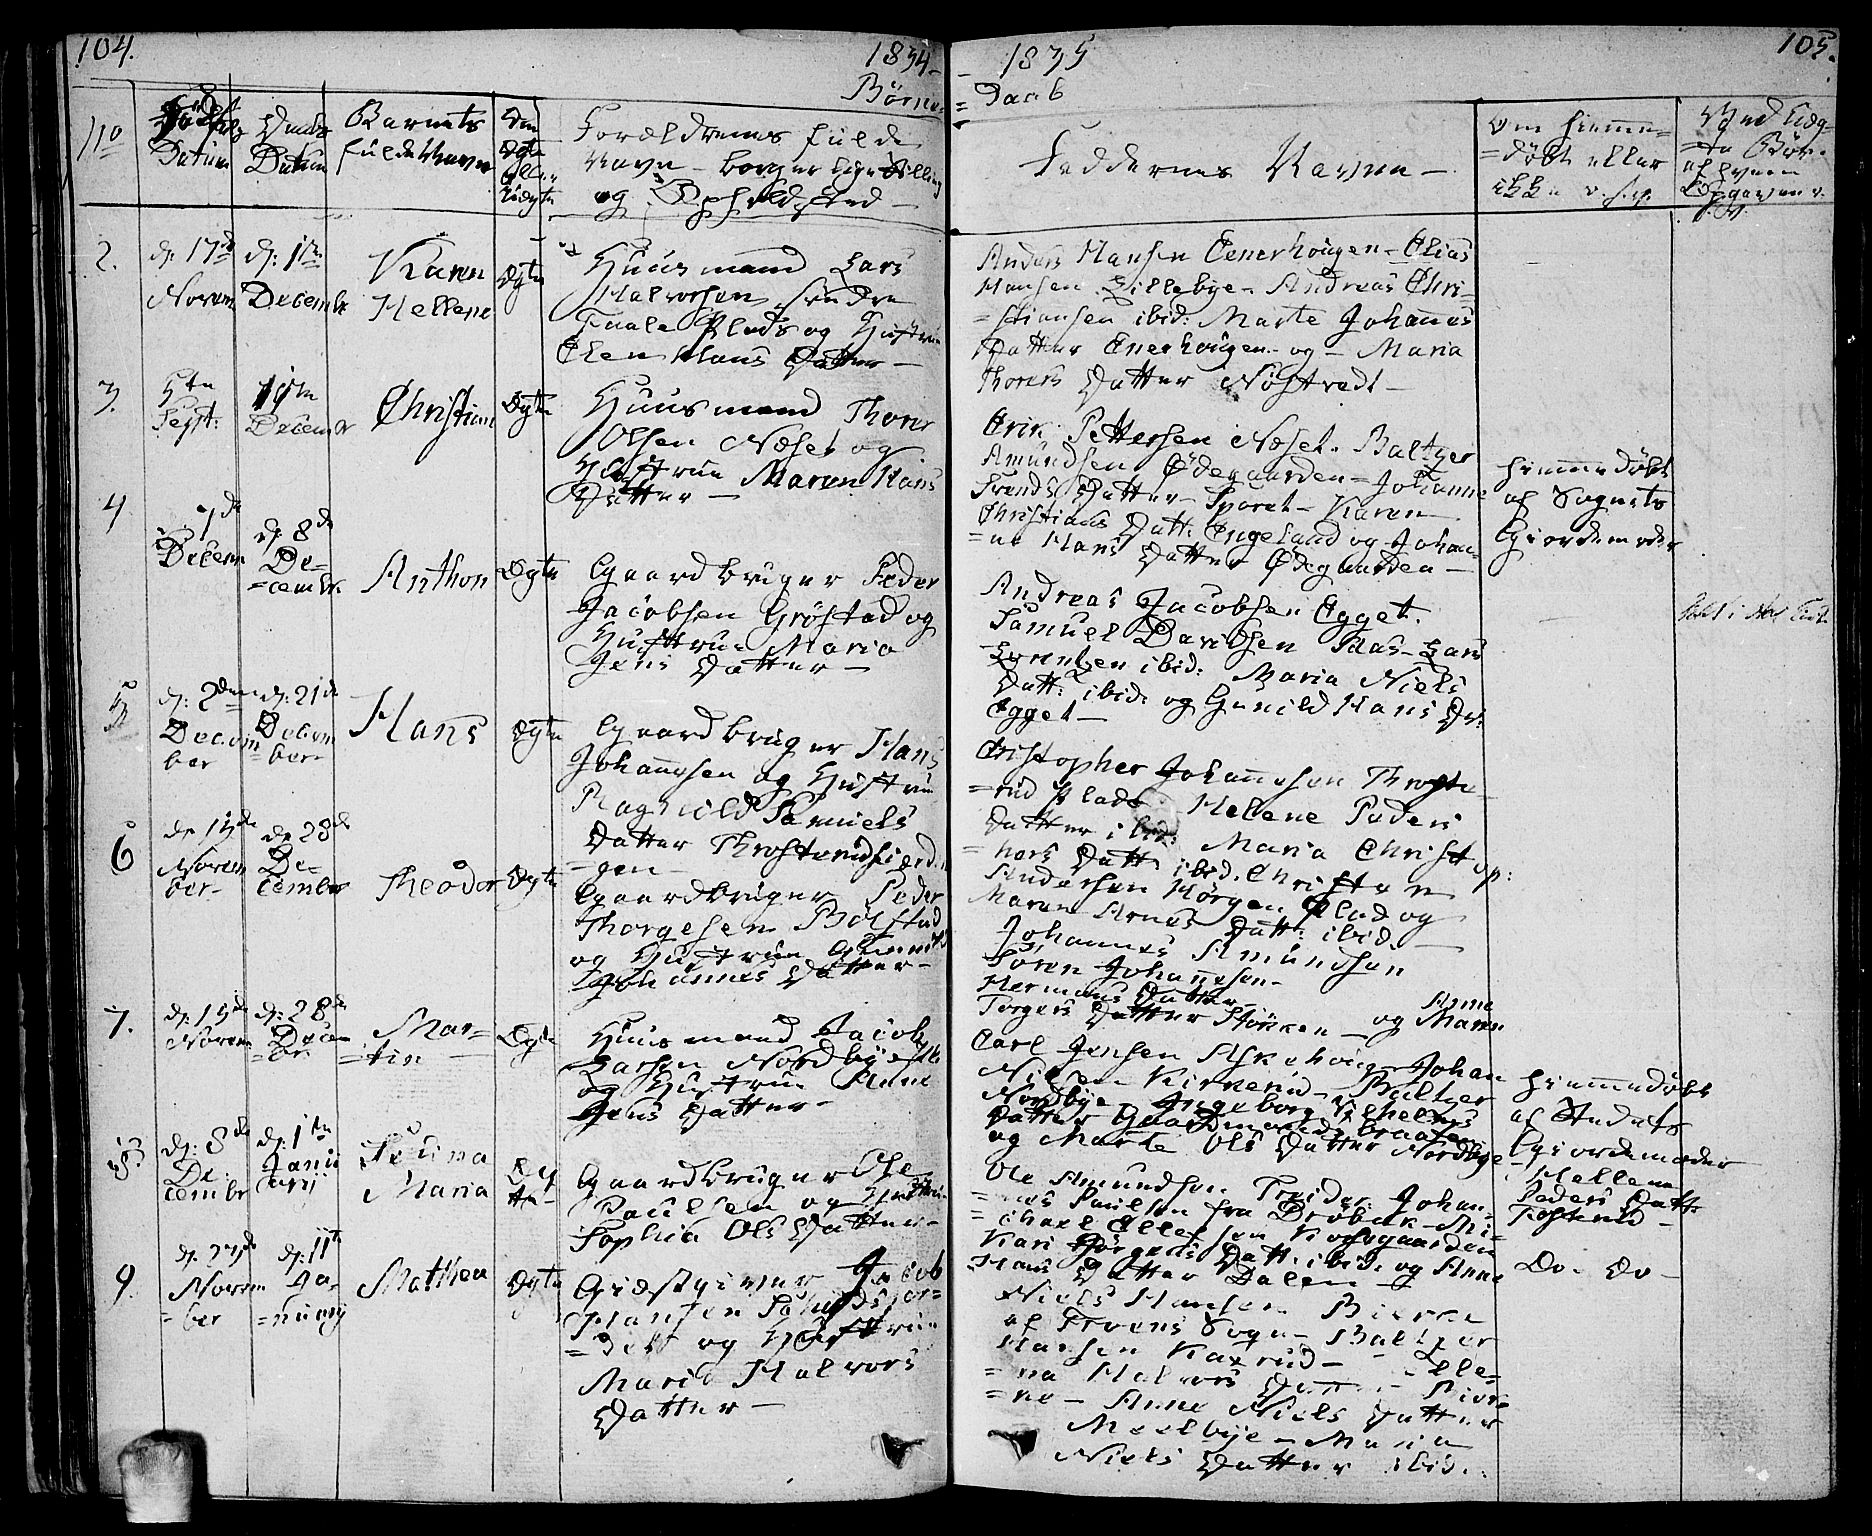 104.
1834-
Børne
No
Født
Datum
Daabs
Datum
Barnets
fulde Navn
Om
Ægte
eller
Uægte
Forældrenes fulde
Navn - borgerlige Stilling
og Opholdsted -
2.
d. 17de
Novem
d: 1te
Decembr
Karen
Hellene
Ægte
Huusmand Lars
Halvorsen søndre
Faale Plads og Hustrue
Elen Hans Datter -
3.
5te
Sept:
Decembr
Christian
Ægte
Huusmand Thorer
Olsen Næset og
Hustrue Maren Hans
Datter -
4
7de
Decem
d. 8de
De-
=cembr.
Anthon
Ægte
Gaardbruger Peder
Jacobsen Grøstad og
Hustrue Maria
Jens Datter -
5
d. 2den
Decem
ber
d: 21de
Decem
=ber-
Hans
Ægte
Gaardbruger Hans
Johannesen og Hustrue
Ragnild Samuels
Datter
=gen-
6
Novem
ber-
d. 28de
De-
cembr
Theodor
Ægte
Gaardbruger Peder
Thorgesen Bølstad
og Hustrue
Johannes Datter-
7.
d. 15de
Novem
d: 28de
Decem
=br
Mar=
=tin -
Ægte
Huusmand Jacob
Larsen Nordbye
og Hustrue Anne
Jens Datter-
8.
d: 8de
De
cembr
d: 1te
Janu
arj
Maria
Æg
te-
Gaardbruger Ole
Paulsen og Hustrue
Sophia Ols Datter-
9.
d. 27de
Novem
=ber
d. 11te
Ja-
=nuarj
Mathea
Ægte
Giæstgiver Jacob
Hansen
=det og Hustrue
Maria Halvors
Datter -
- 1835
105.
= Daab
Faddernes Navne -
Om hiemme=
=døbt eller
ikke v. s. v.
Ved Uæg=
=te Børn
af hvem
Udgaven v.
s. v.
Anders Hansen Enerhougen - Elias
Hansen Lillebye - Andreas Chri=
=stiansen ibid: Marte Johannes
Datter Enerhougen - og - Maria
Thorers Datter Nøstvedt -
Erik Pettersen Næset. Baltzer
Amundsen Ødegaarden = Johanne
Datter - Sporet - Karen
Christians Datt: Engelund og Johan=
=ne Hans Datter Ødegaarden -
hiemmedøbt
af Sognets
Giordemoder
Andreas Jacobsen Egget.
Samuel Davidsen Aas - Lars
Lorentzen ibid: Maria Niels
Datt: ibid: og Gunild Hans Dr.
Egget -
Cristopher Johannesen
=rud Plads. Helene Peders
Datter ibid: Maria Christop:
=hers Datt: ibid. Christen
Andersen Hørgen Plad og
Maren Arnes Datt: ibid. -
Johannes Amundsen
Søren Johannesen -
Hermans Datter -
Torgers Datter Støkken - og Anne
Maren
Carl Jensen Askehoug - Johan
Nielsen Kirkerud - Baltzer
Nordbye - Ingeborg Vilhelms
Datter
og Marte Ols Datter Nordbye
hiemmedøbt
af Stedets
Giordemoder
- Hellene
Peders Datt:
Ole Amundsen Treider - Johan=
=nes Paulsen fra Drøbak - Mi-
=chael Ellefsen Korsgaarden
Kari Jørgens Datt. ibid. og Anne
Hans Datter Dalen -
Do - Do -
Niels Hansen Bierke
af Froens Sogn - Baltzer
Hansen Kaxrud - Elle=
=na Halvors Datter - Bierk
=ne - Anne Niels Datter
Meelbye - Maria
Niels Datter ibid.